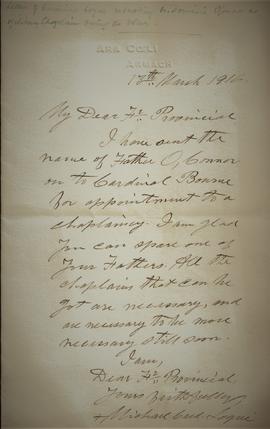 ARA COELI
ARMACH
13th March 1916.
My Dear Fr. Provincial
I have sent the
name of Father O'Connor
on to Cardinal Bourne
for appointment to a
chaplaincy. I am glad
you can spare one of
your Fathers. All the
chaplains that can be
got are necessary, and
are necessary to be more
necessary still soon.
I am,
Dear Fr. Provincial,
Yours faithfully
+ Michael Card. Logue